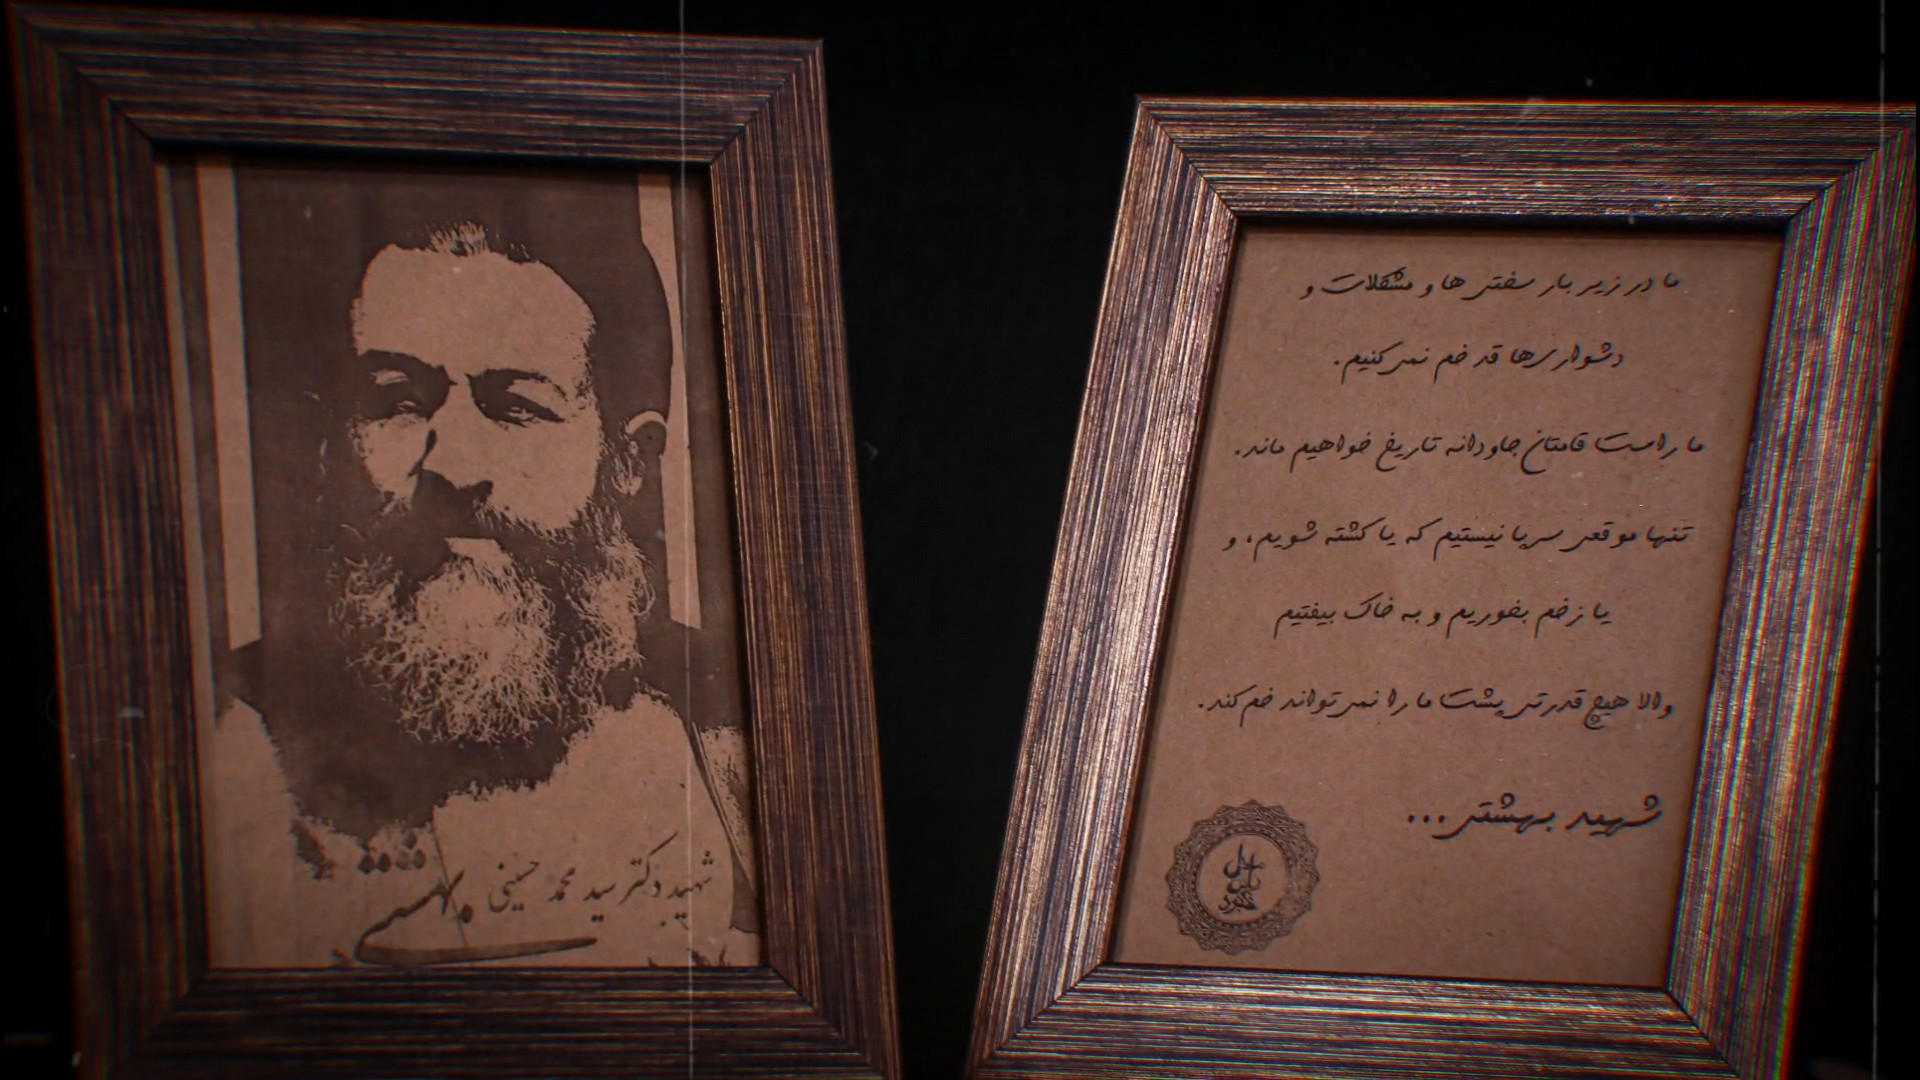 شهید دکتر سید محمد حسینی
بهشتی
ما در زیر بار سختی ها و مشکلات و
دشواری‌ها قد خم نمی‌کنیم.
ما راست قامتان جاودانه تاریخ خواهیم ماند.
تنها موقعی سرپا نیستیم که یا کشته شویم، و
یا زخم بخوریم و به خاک بیفتیم
والا هیچ قدرتی پشت ما را نمی‌تواند خم کند.
شهید بهشتی...